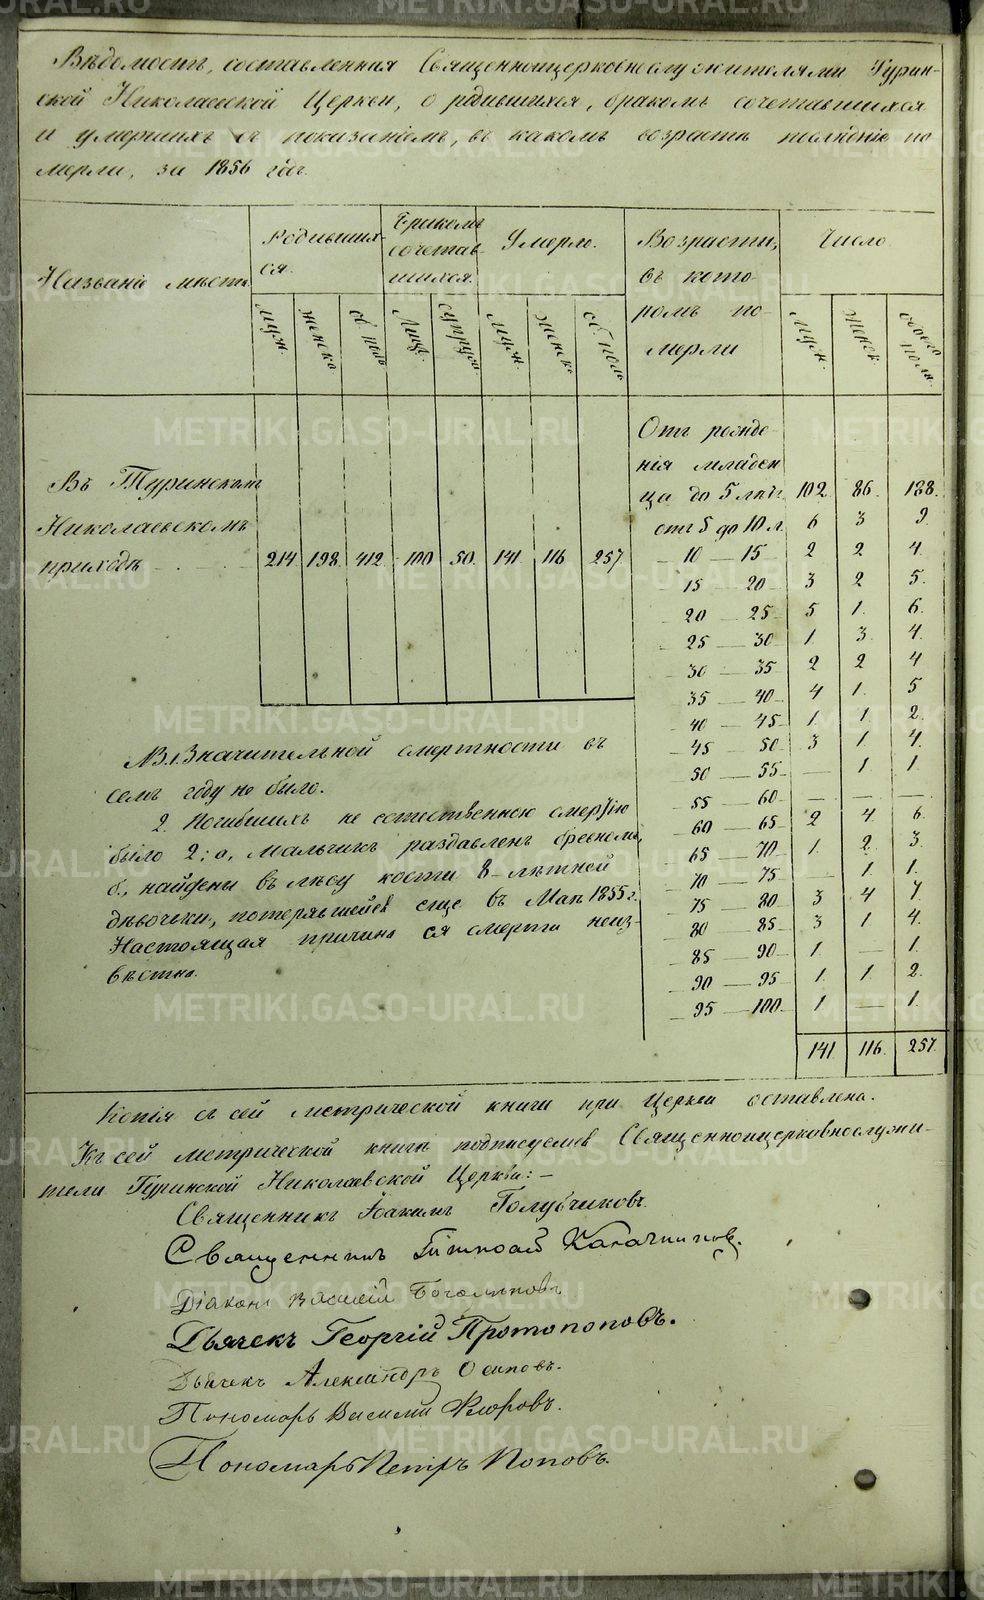 Вѣдомость, составленная Священноцерковнослужителями Турин-
ской Николаевской Церкви, о родившихся, бракомъ сочетавшихся
и умершихъ съ показаніемъ, въ какомъ возрастѣ послѣдніе по
мерли, за 1856 годъ.
Названіе мѣста
Родивших-
ся.
Бракомъ
сочетав-
шихся.
Умерло.
Возрасты,
въ кото-
ромъ по-
мерли
Число
муж. женска об. полъ Лицъ. супруж. муж. женска об. полъ муж. женск. обоего пола.
Въ Туринскомъ
Николаевскомъ
приходѣ 214 198 412 100 50. 141. 116 257.
Отъ рожде-
нія младен
ца до 5 лѣтъ 102. 86. 188.
отъ 5 до 10 л. 6 3 9.
10 — 15 2 2 4.
15 — 20 3 2 5.
20 — 25 5 1. 6.
25 — 30 1. 3. 4.
30 — 35 2 2 4
35 — 40 4 1. 5
40 — 45 1. 1. 2.
45 — 50 3 1 4.
50 — 55 — 1. 1.
55 — 60 — — —
60 — 65 2 4 6.
65 — 70 1. 2. 3.
70 — 75 1. 1.
75 — 80 3 4 7
80 — 85 3 1 4.
85 — 90 1. — 1.
90 — 95 1. 1 2.
95 — 100. 1 1.
141 116. 257.
NB. 1. Значительной смертности въ
семъ году не было.
2. Погибшихъ не естественною смертію
было 2; а, мальчикъ раздавленъ бревномъ,
б., найдены въ лѣсу кости 8-лѣтной
дѣвочки, потерявшейся еще въ Маѣ 1855 г.
Настоящая причина ея смерти неиз-
вѣстна.
Копія съ сей метрической книги при Церкви оставлена.
Къ сей метрической книгѣ подписуемся Священноицерковнослужи-
тели Туринской Николаевской Церкви: —
Священникъ Іоакимъ Голубчиковъ.
Священникъ
Діаконъ Василій
Дьячекъ Георгій Протопоповъ.
Дьячекъ Александръ Осиповъ.
Пономарь Василій Флоровъ.
Пономарь Петръ Поповъ.
METRIKI.GASO-URAL.RU